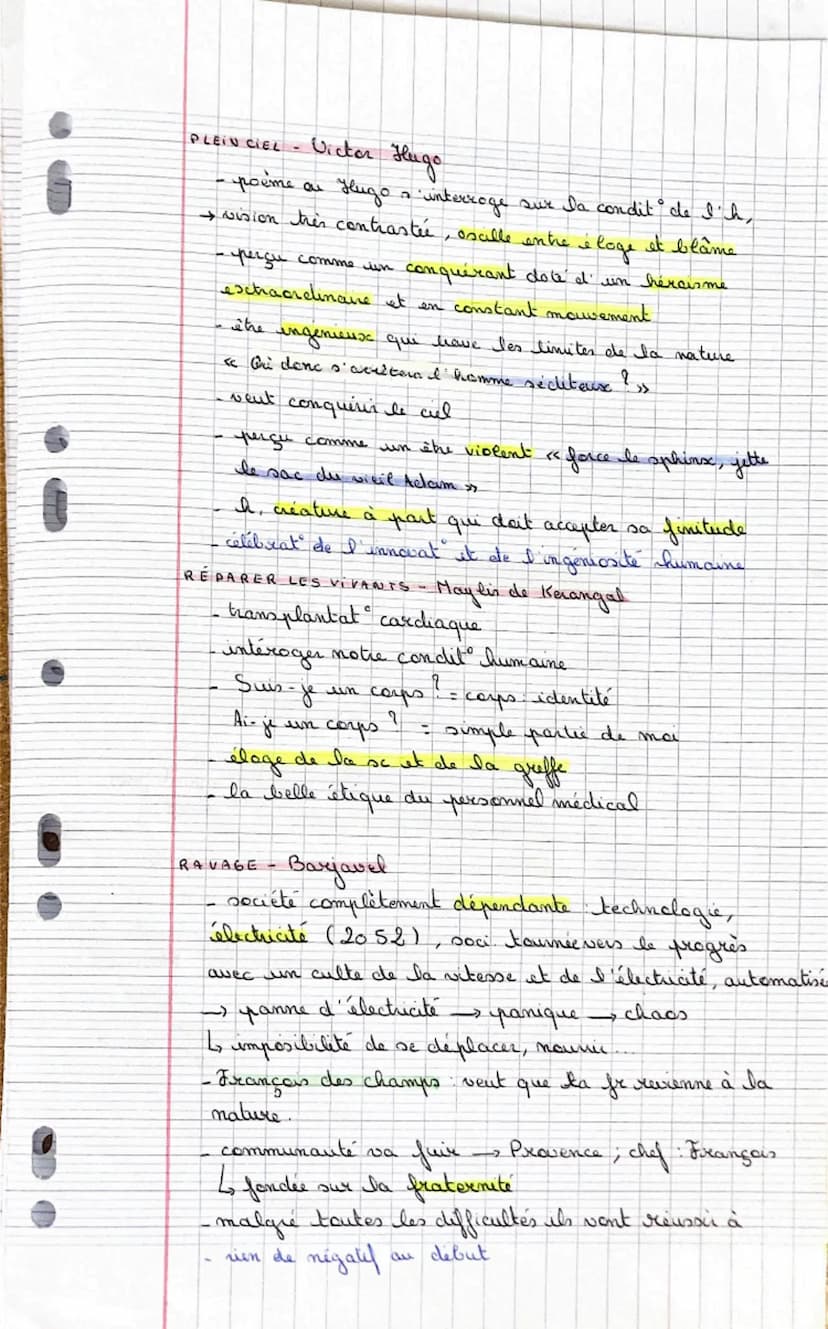 PLEIN CIEL - Victor Hugo
- poème où Hugo s'interroge sur la condit° de l'h,
→ vision très contrastée, oscille entre éloge et blâme
- perçu comme un conquérant doté d'un héroïsme
extraordinaire et en constant mouvement
- être ingénieux qui brave les limites de la nature
« Où donc s'arrêtera l'homme séditieux ? »
- veut conquérir le ciel
- perçu comme un être violent « force le sphinx, jette
le sac du vieil Adam »
- h, créature à part qui doit accepter sa finitude
- célébrat° de l'innovat° et de l'ingéniosité humaine
RÉPARER LES VIVANTS - Maylis de Kerangal
- transplantat° cardiaque
- intéroger notre condit° humaine
- Suis-je un corps ? = corps : identité
Ai-je un corps ? = simple partie de moi
- éloge de la sc et de la greffe
- la belle étique du personnel médical
RAVAGE - Barjavel
- société complètement dépendante : technologie,
électricité (2052), soci. tournée vers le progrès
avec un culte de la vitesse et de l'électricité, automatisé
→ panne d'électricité → panique → chaos
↳ imposibilité de se déplacer, nourrir...
- François des champs : veut que la fr revienne à la
nature.
- communauté va fuir → Provence ; chef : François
↳ fondée sur la fraternité
- malgré toutes les difficultés ils vont réussir à
- rien de négatif au début